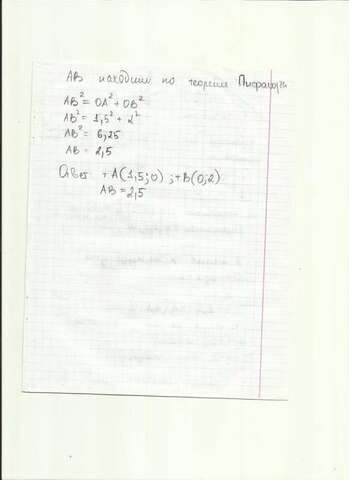 AB находим по теореме Пифагора
AB² = OA² + OB²
AB² = 1,5² + 2²
AB² = 6,25
AB = 2,5
Ответ т A(1,5;0) ; т B(0;2)
AB = 2,5